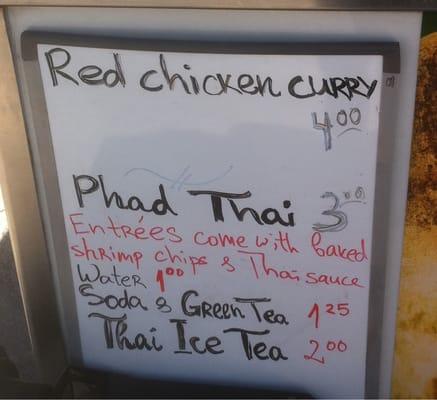 Red chicken CURRY
4.00
Phad Thai 3.00
Entrées come with baked
shrimp chips & Thai sauce
Water 1.00
Soda & Green Tea 1.25
Thai Ice Tea 2.00